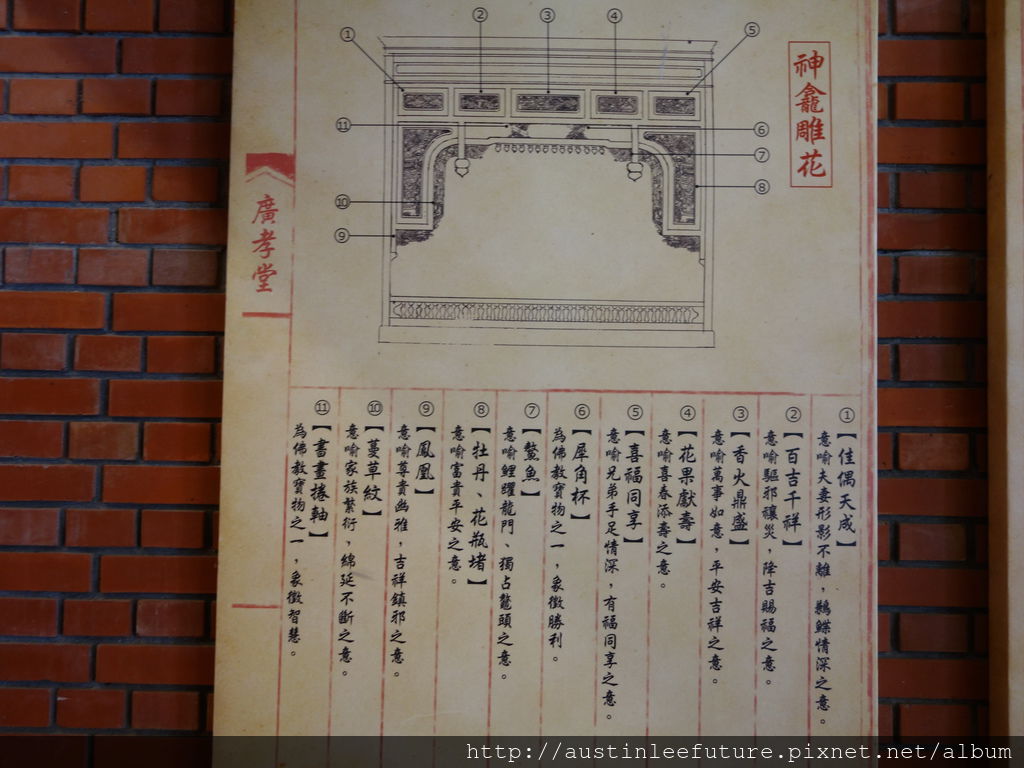 神龕雕花
① ② ③ ④ ⑤
⑥
⑦
⑧
⑨
⑩
⑪
廣孝堂
①【佳偶天成】
意喻夫妻形影不離，鶼鰈情深之意。
②【百吉千祥】
意喻驅邪禳災，降吉賜福之意。
③【香火鼎盛】
意喻萬事如意，平安吉祥之意。
④【花果獻壽】
意喻喜春添壽之意。
⑤【喜福同享】
意喻兄弟手足情深，有福同享之意。
⑥【犀角杯】
為佛教寶物之一，象徵勝利。
⑦【鰲魚】
意喻鯉躍龍門、獨占鰲頭之意。
⑧【牡丹、花瓶堵】
意喻富貴平安之意。
⑨【鳳凰】
意喻尊貴幽雅，吉祥鎮邪之意。
⑩【蔓草紋】
意喻家族繁衍，綿延不斷之意。
⑪【書畫捲軸】
為佛教寶物之一，象徵智慧。
http://austinleefuture.pixnet.net/album